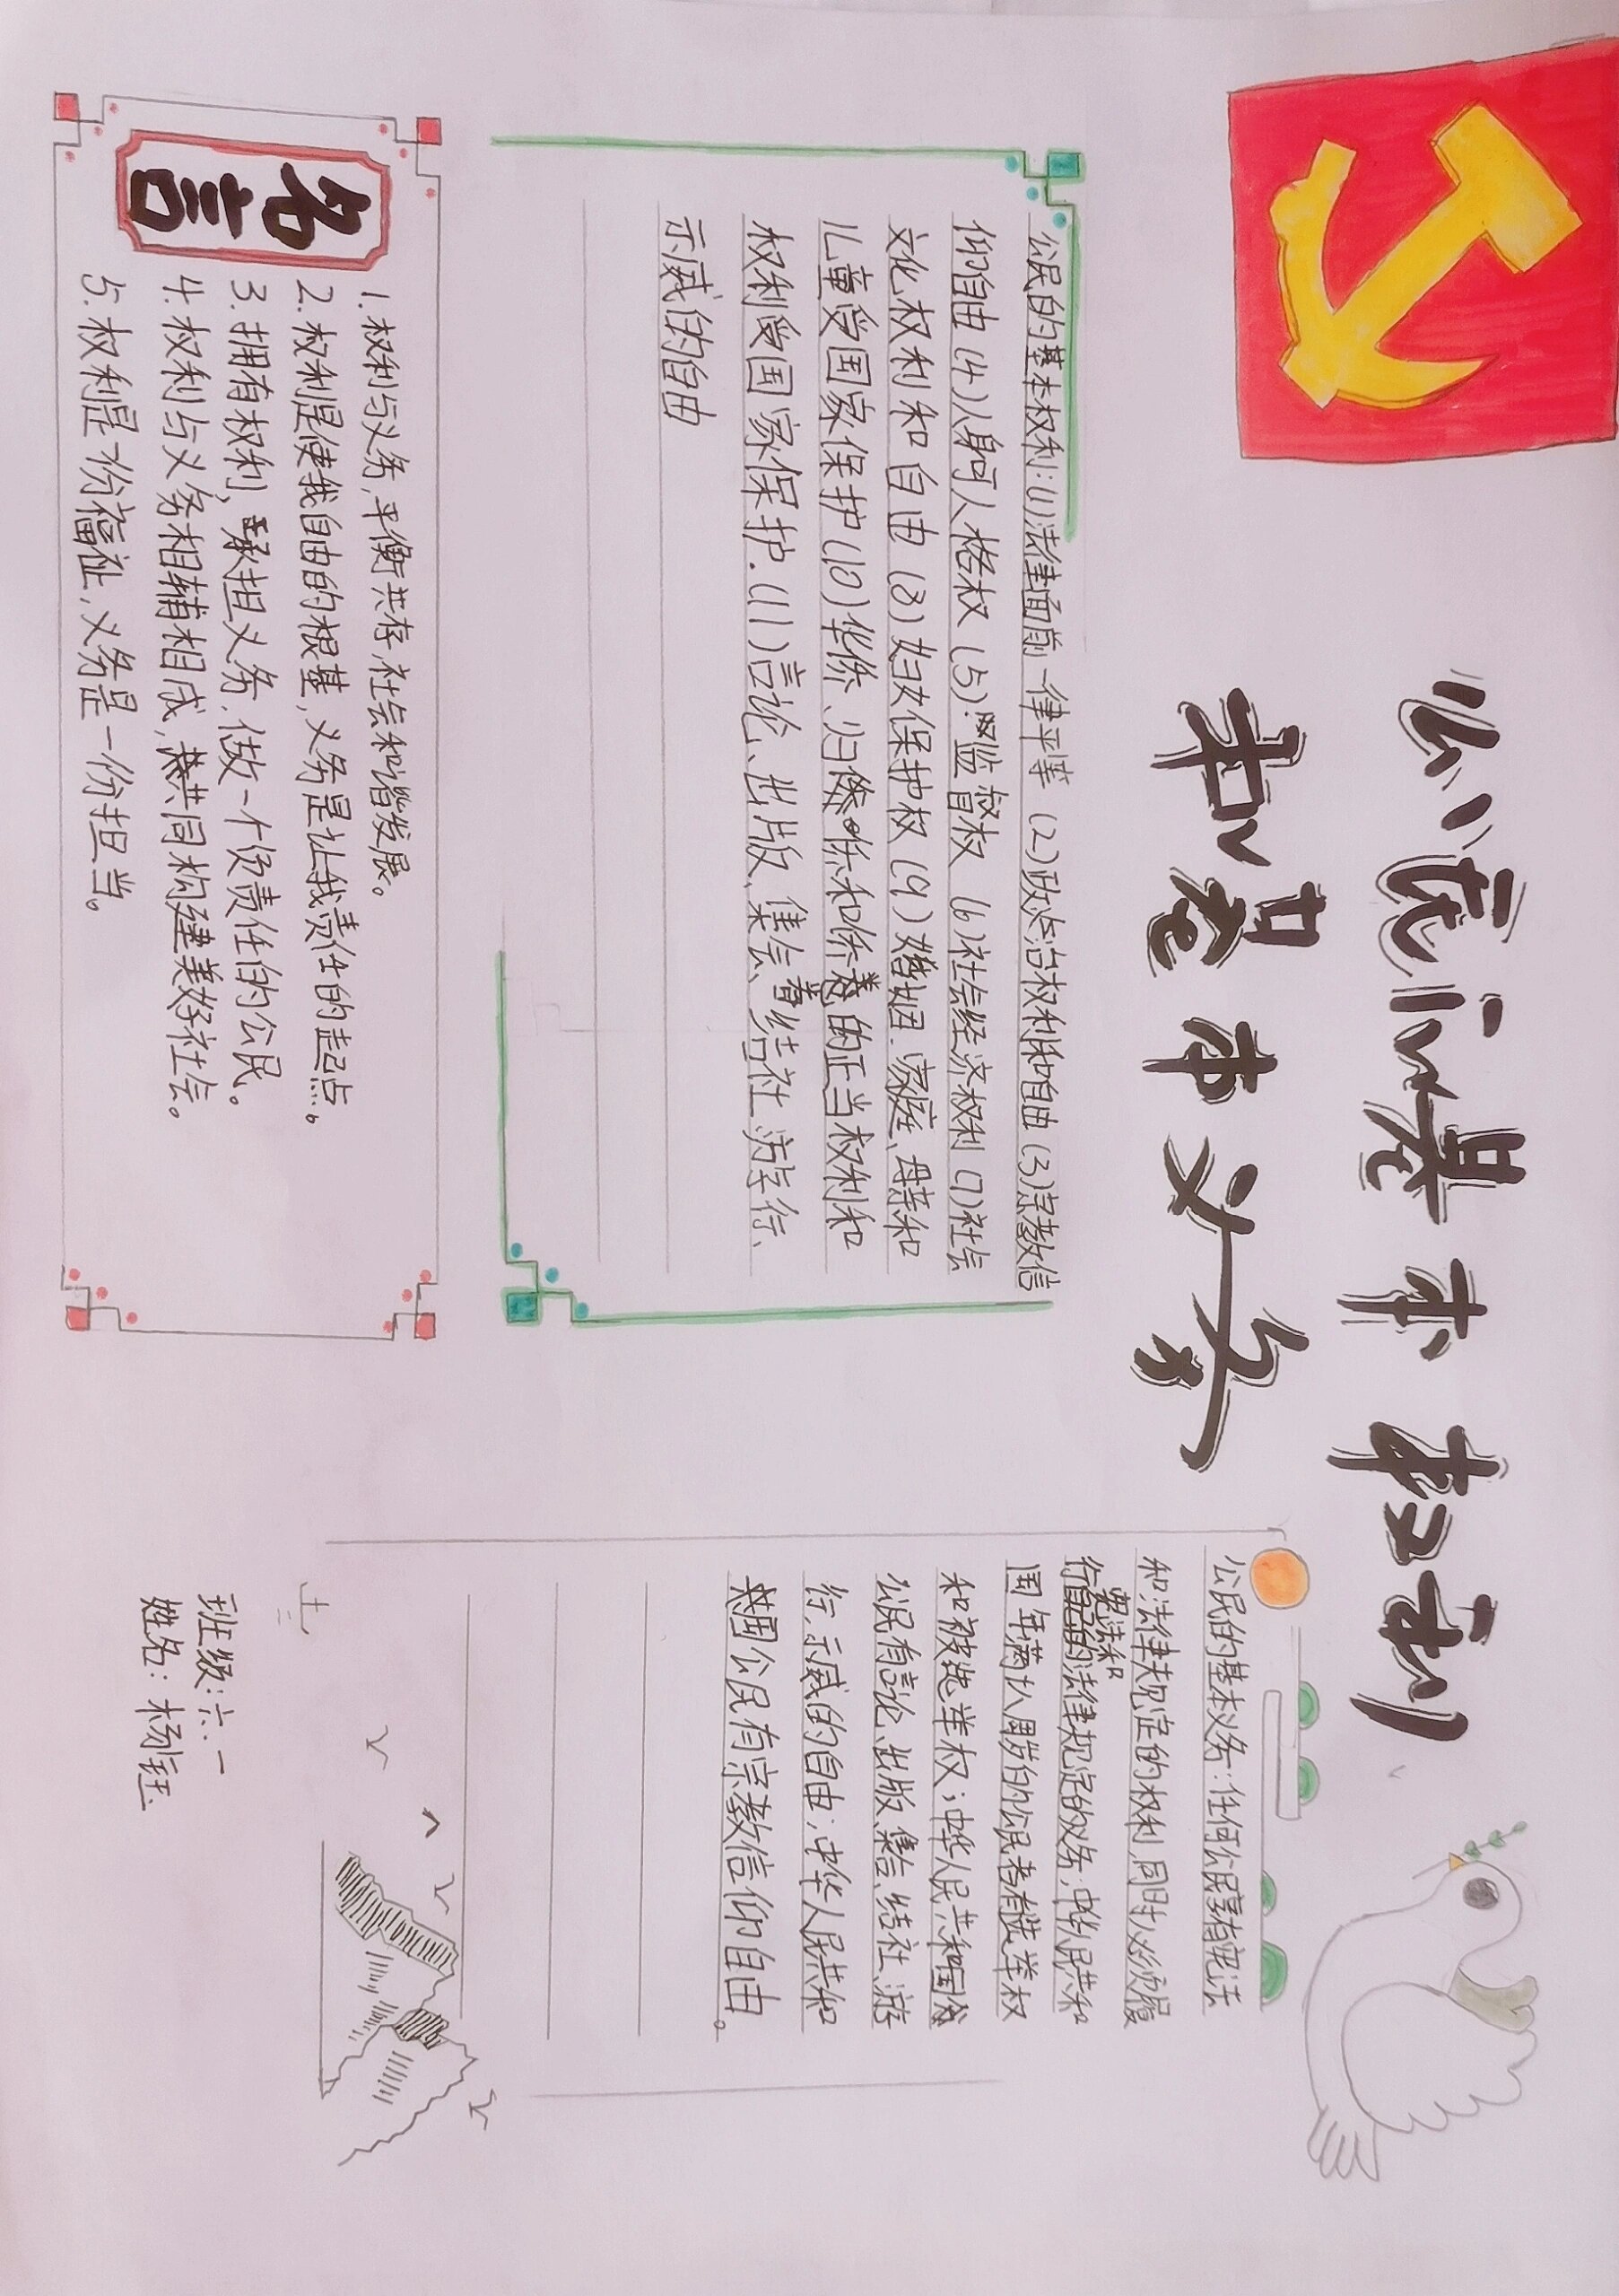 公民的基本权利
和基本义务
公民的基本权利:(1)法律面前一律平等 (2)政治权利和自由 (3)宗教信
仰自由 (4)人身和人格权 (5)监督权 (6)社会经济权利 (7)社会
文化权利和自由 (8)妇女保护权 (9)婚姻、家庭、母亲和
儿童受国家保护 (10)华侨、归侨和侨眷的正当权利和
权利受国家保护. (11)言论、出版、集会、结社、游行、
示威的自由
名言
1.权利与义务,平衡共存,社会和谐发展。
2.权利是使我自由的根基,义务是让我责任的起点。
3.拥有权利,承担义务,做一个负责任的公民。
4.权利与义务相辅相成,共同构建美好社会。
5.权利是一份福祉,义务是一份担当。
公民的基本义务:任何公民享有宪法
和法律规定的权利,同时必须履
行宪法和法律规定的义务;中华人民共和
国年满十八周岁的公民者有选举权
和被选举权;中华人民共和国
公民有言论、出版、集会、结社、游
行、示威的自由;中华人民共和
国公民有宗教信仰自由。
班级:六.一
姓名:杨钰